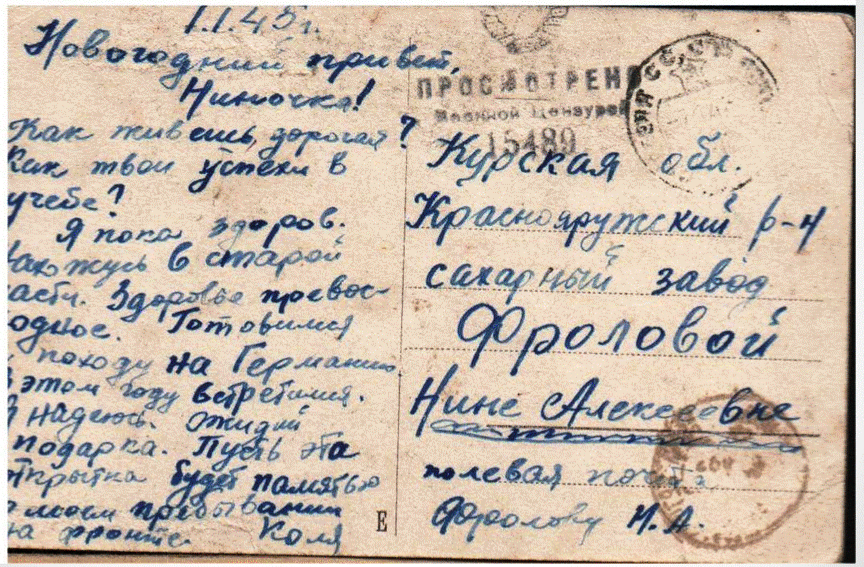 1.1.45г.
Новогодний привет,
Ниночка!
Как живешь, дорогая?
Как твои успехи в
учебе?
Я пока здоров.
Нахожусь в старой
части. Здоровье превос-
ходное. Готовимся
к походу на Германию.
В этом году встретимся.
Я надеюсь. Ожидай
подарка. Пусть эта
открытка будет памятью
о моем пребывании
на фронте. Коля
ПРОСМОТРЕНО
Военной Цензурой
15489
Курская обл.
Краснояружский р-н
сахарный завод
Фроловой
Нине Алексеевне
полевая почта
Фролову Н.А.
Е